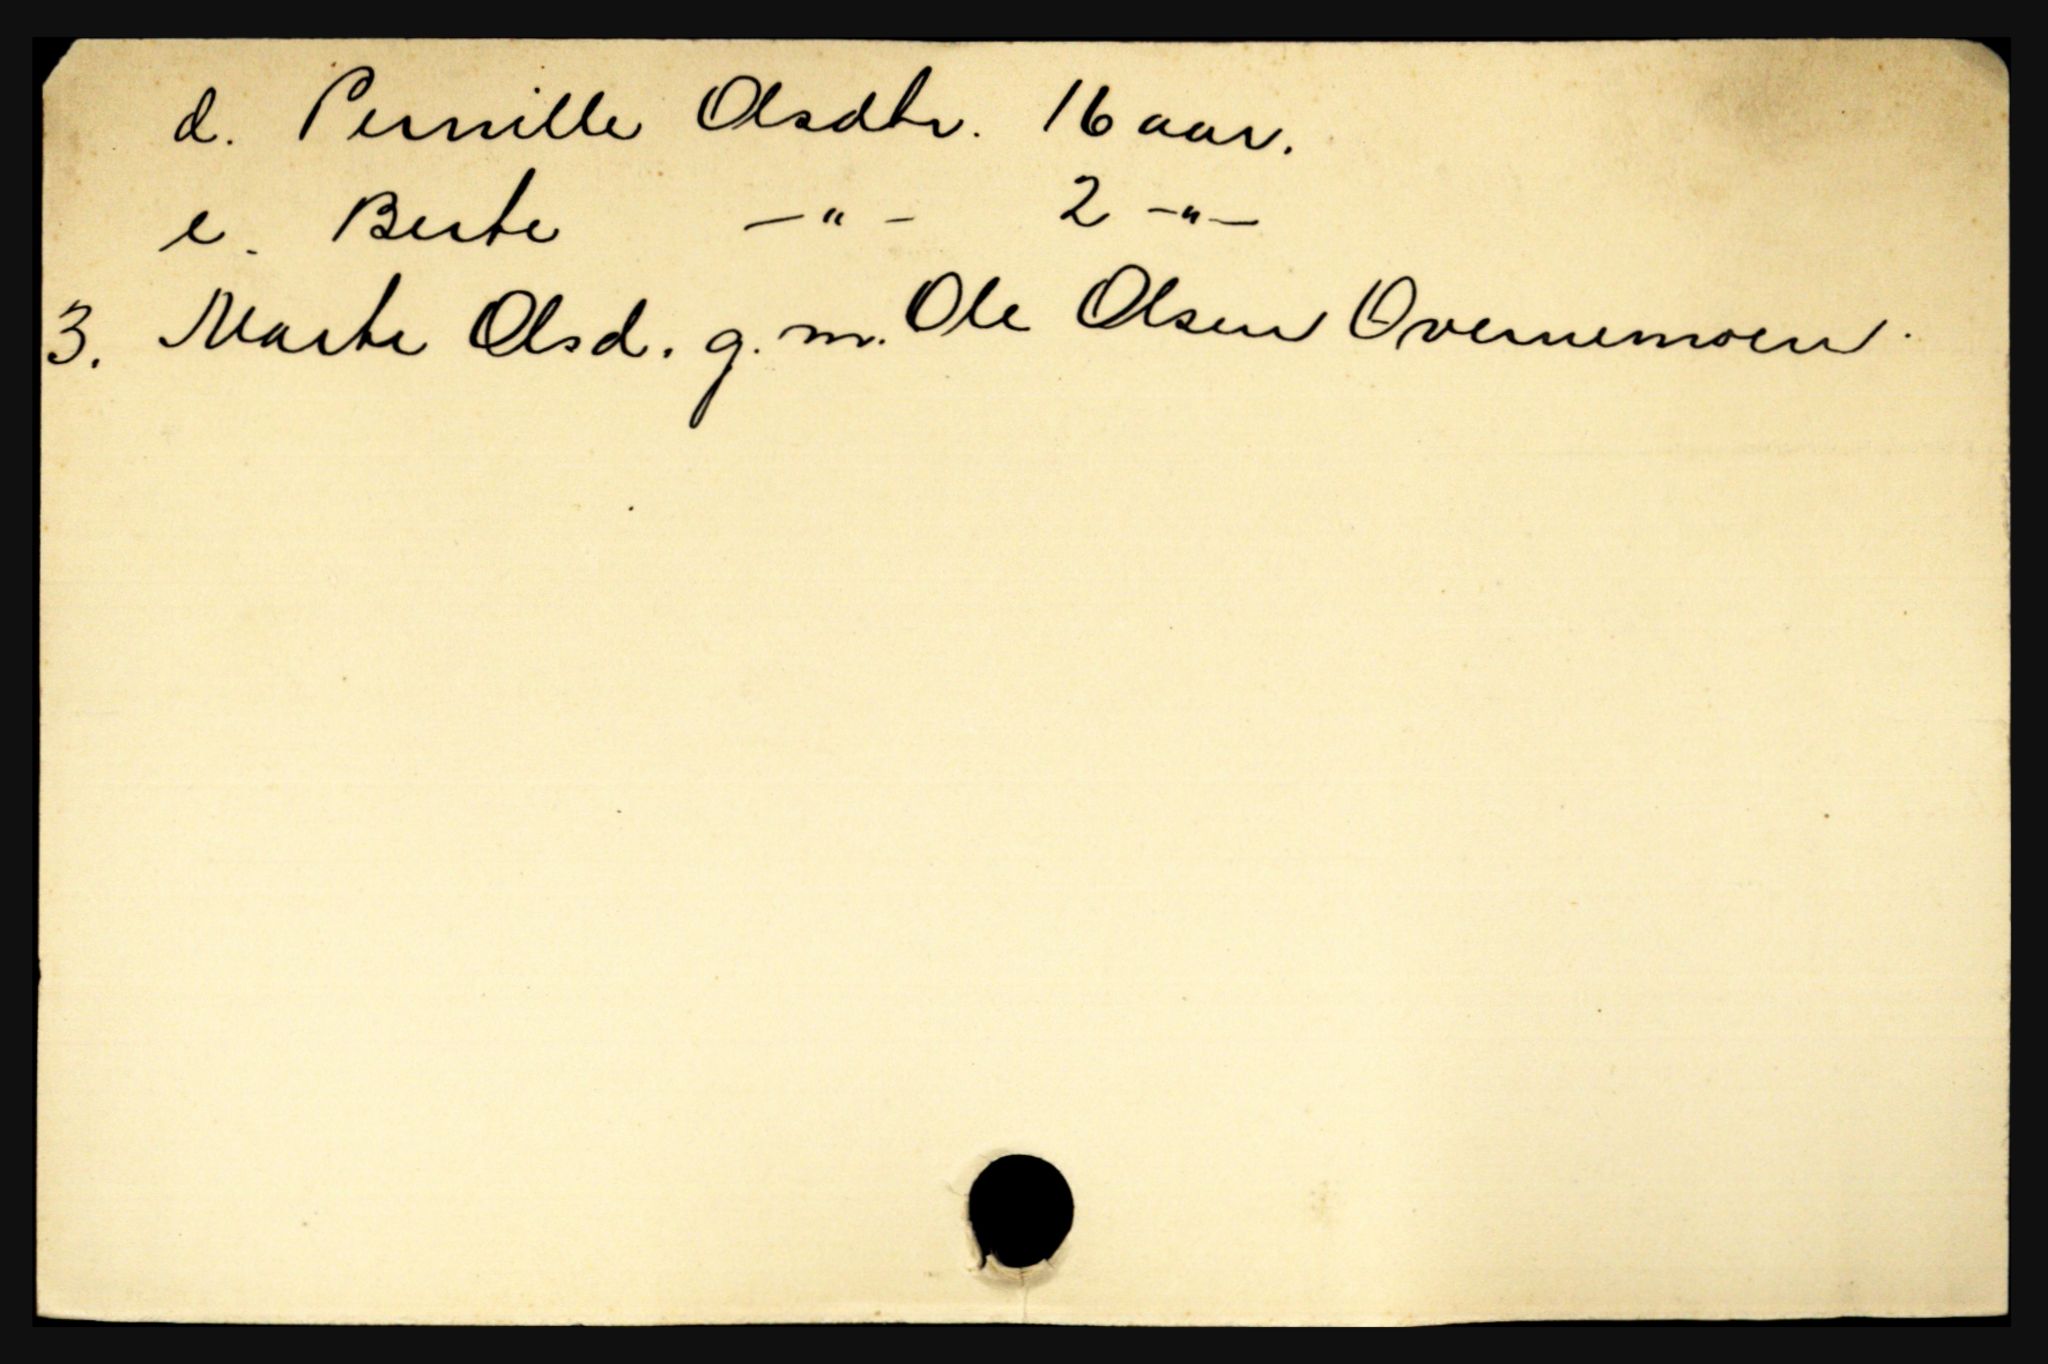 d. Pernille Olsdtr. 16 aar.
e. Berte -"- 2 -"-
3. Marte Olsd. g. m. Ole Olsen Overnemoen.